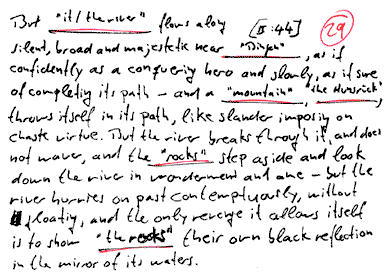 But "it/the river" flows along [II:44] 29
silent, broad and majestetic near "Bingen", as if
confidently as a conquering hero and slowly, as if sure
of completing its path – and a "mountain", "the Hunsrick",
throws itself in its path, like slander imposing on
chaste virtue. But the river breaks through it, and does
not waver, and the "rocks" step aside and look
down the river in wonderment and awe – but the
river hurries on past contemptuously, without
gloating, and the only revenge it allows itself
is to show "the rocks" their own black reflection
in the mirror of its waters.